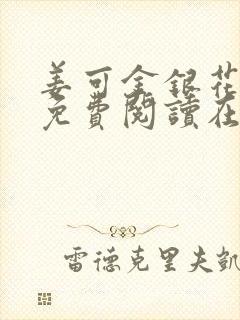 姜可金銀花
免費閱讀在
雷德克里夫凱